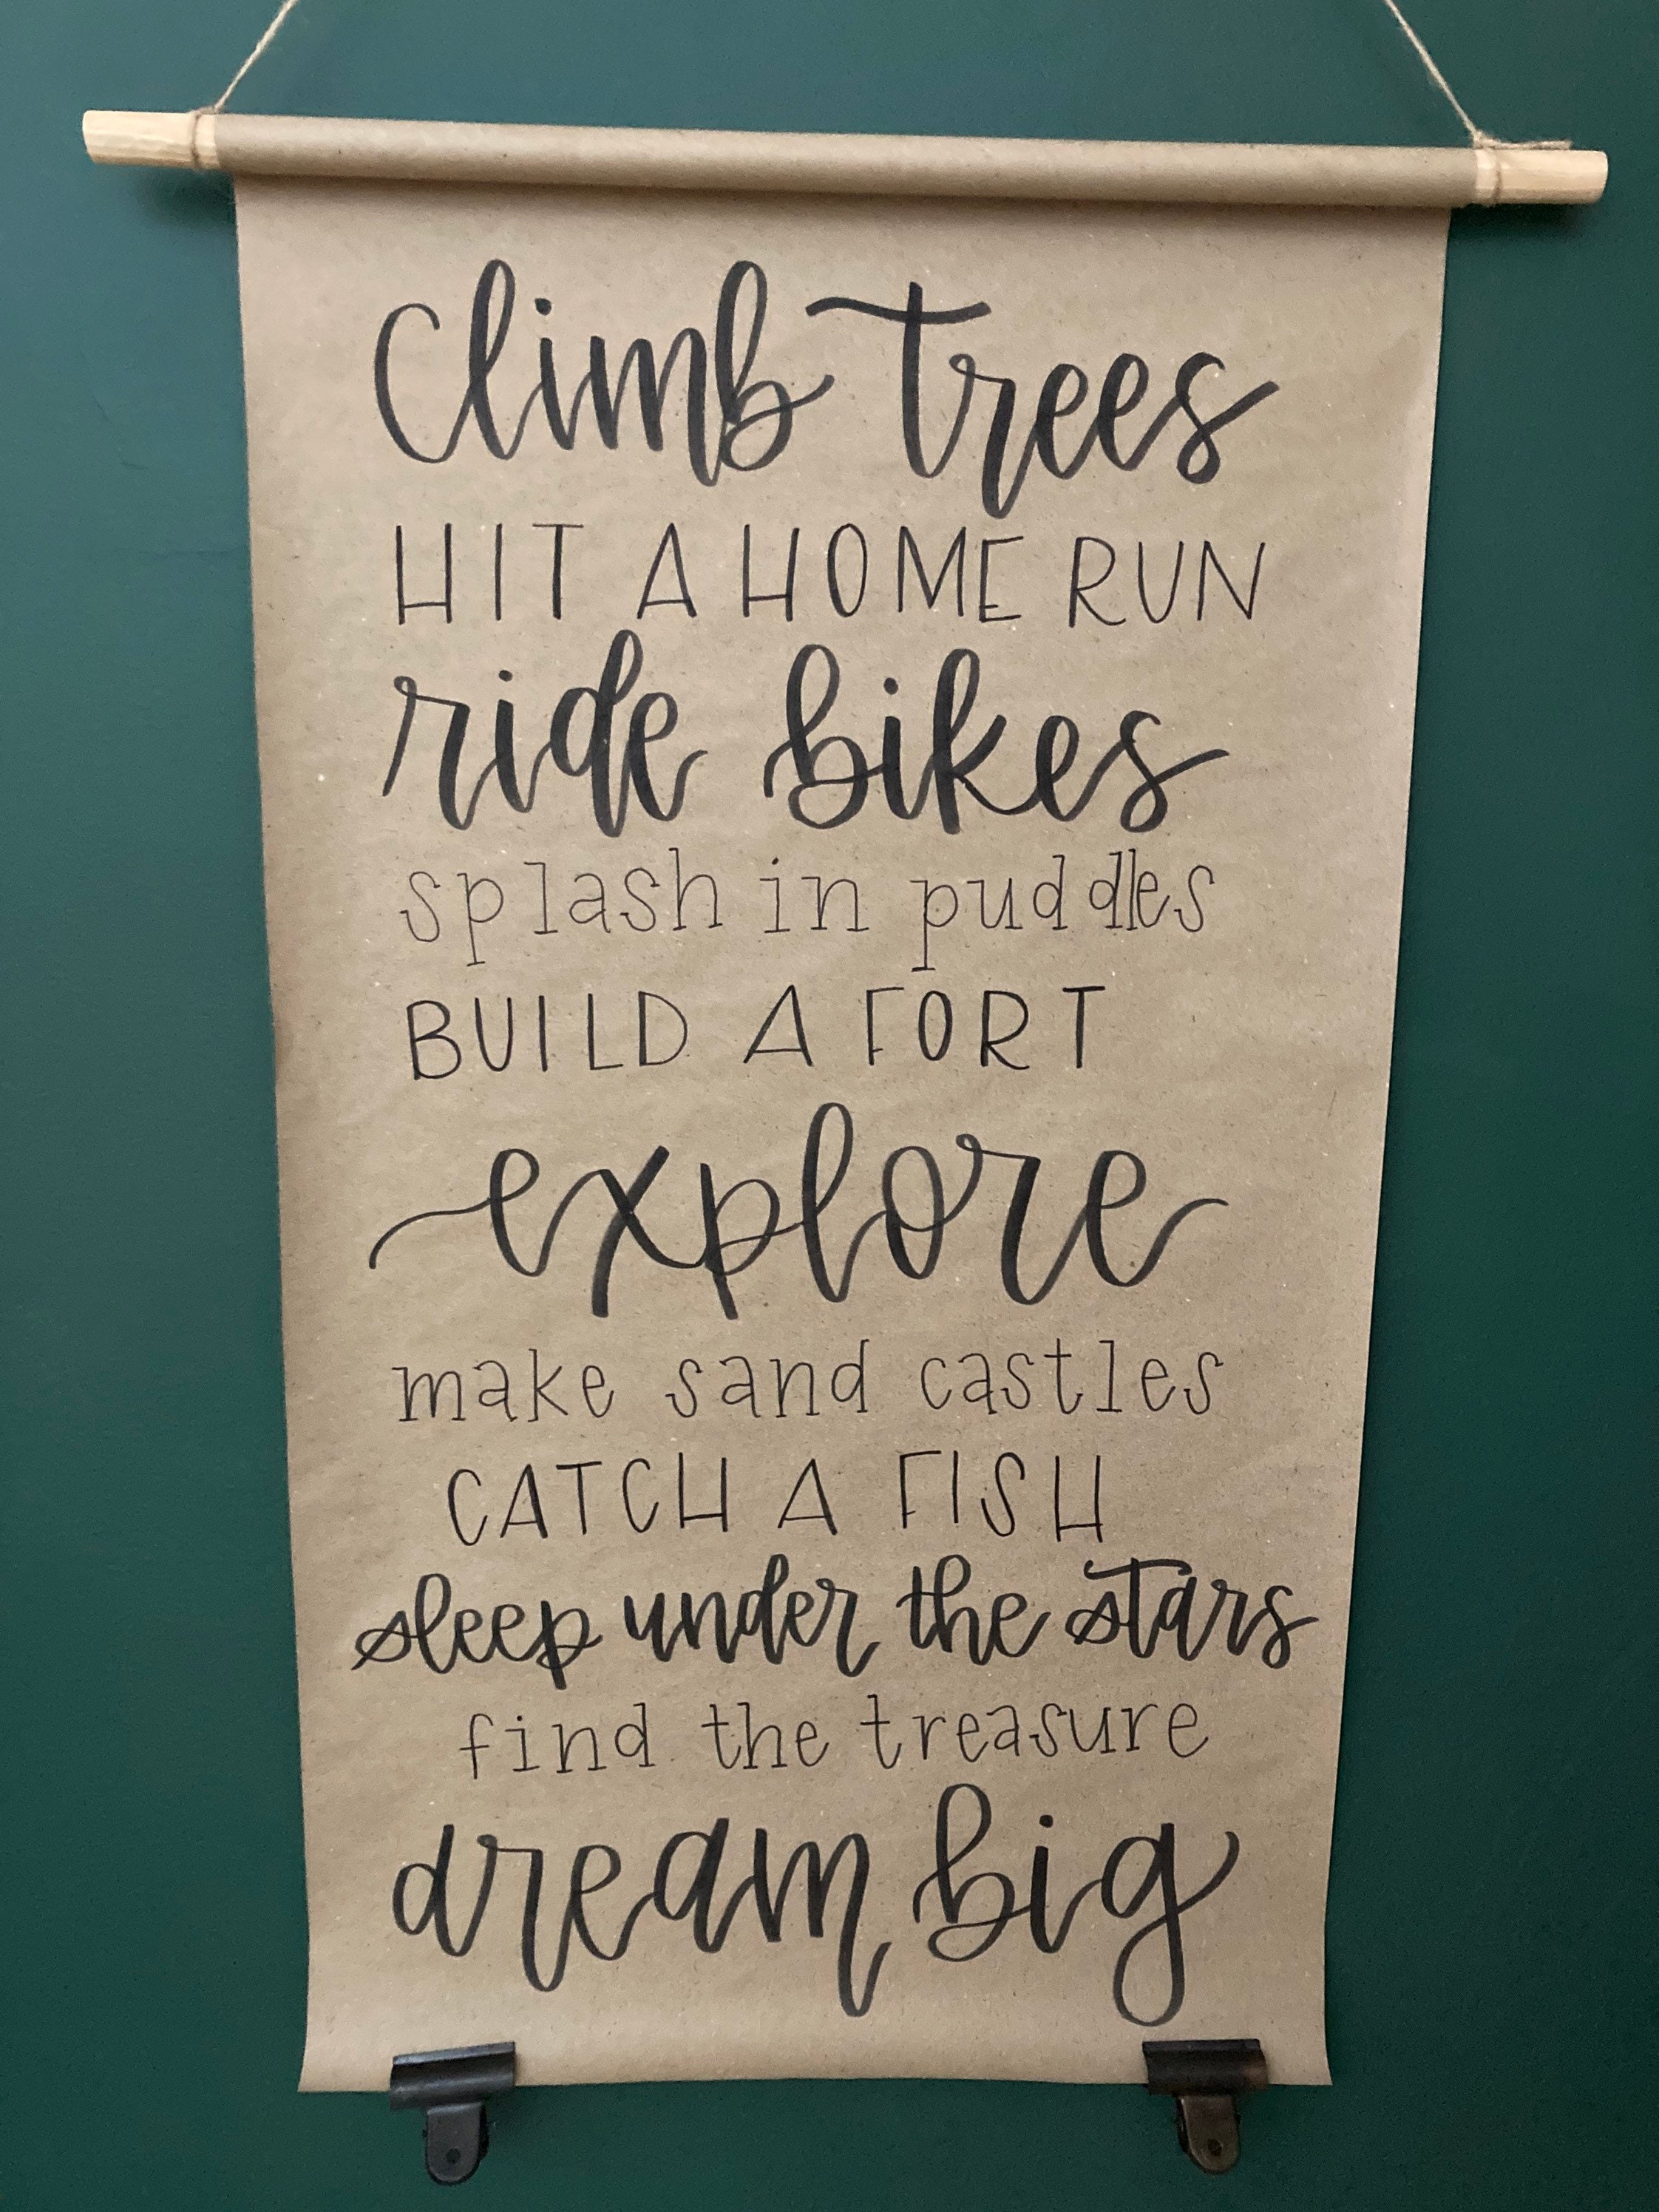 Climb trees
HIT A HOME RUN
ride bikes
splash in puddles
BUILD A FORT
explore
make sand castles
CATCH A FISH
sleep under the stars
find the treasure
dream big